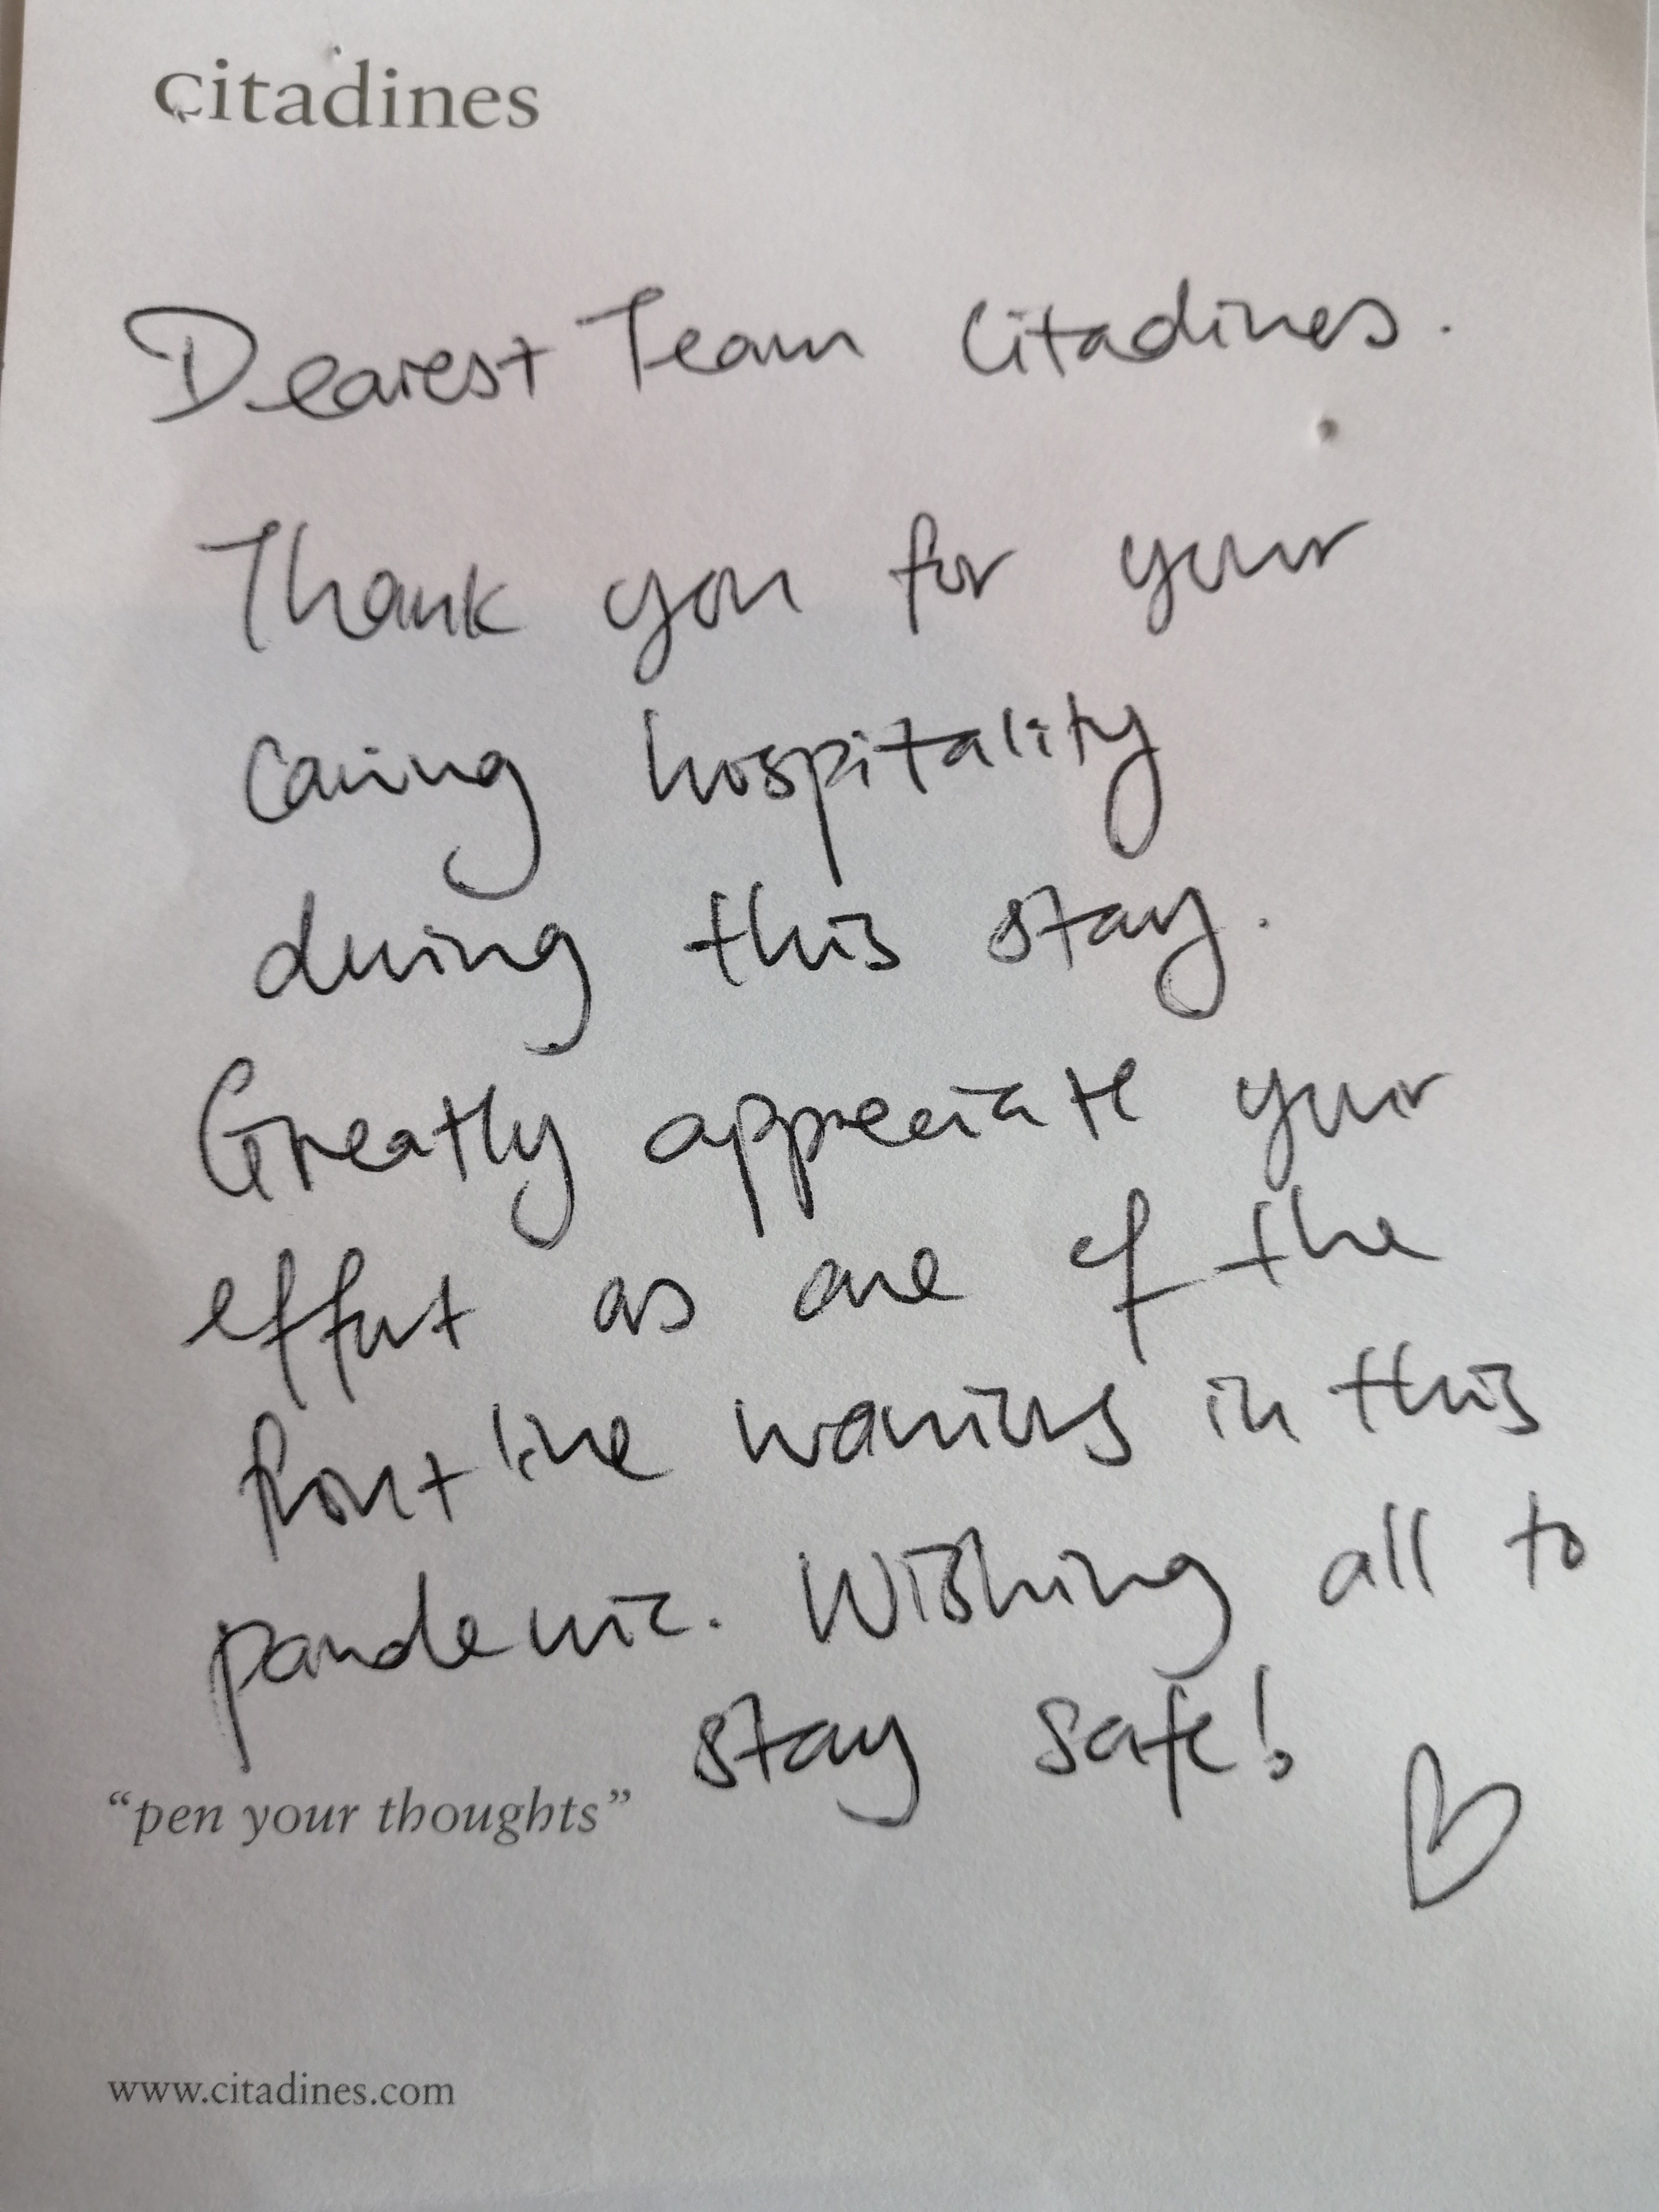 citadines
Dearest Team Citadines.
Thank you for your
caring hospitality
during this stay.
Greatly appreciate your
effort as one of the
frontline warriors in this
pandemic. Wishing all to
stay safe!
"pen your thoughts"
www.citadines.com